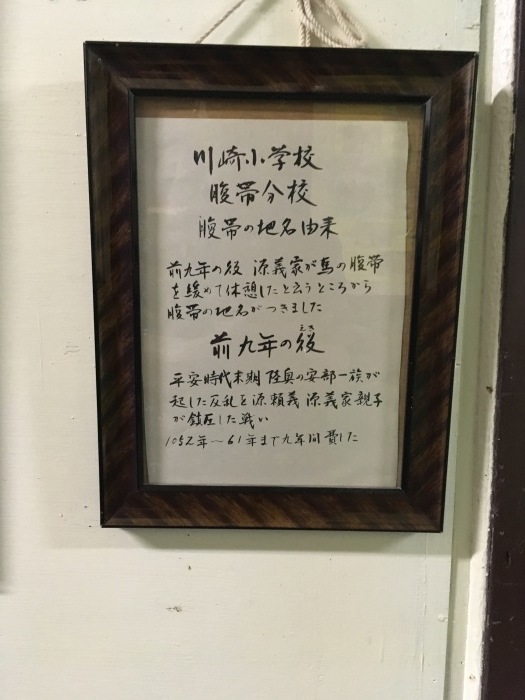 川崎小学校
腹帯分校
腹帯の地名由来
前九年の後 源義家が馬の腹帯
を緩めて休憩したと云うところから
腹帯の地名がつきました
えき
前九年の後
平安時代末期 陸奥の安部一族が
起した反乱を源頼義 源義家親子
が鎮圧した戦い
1052年〜61年まで九年間費した